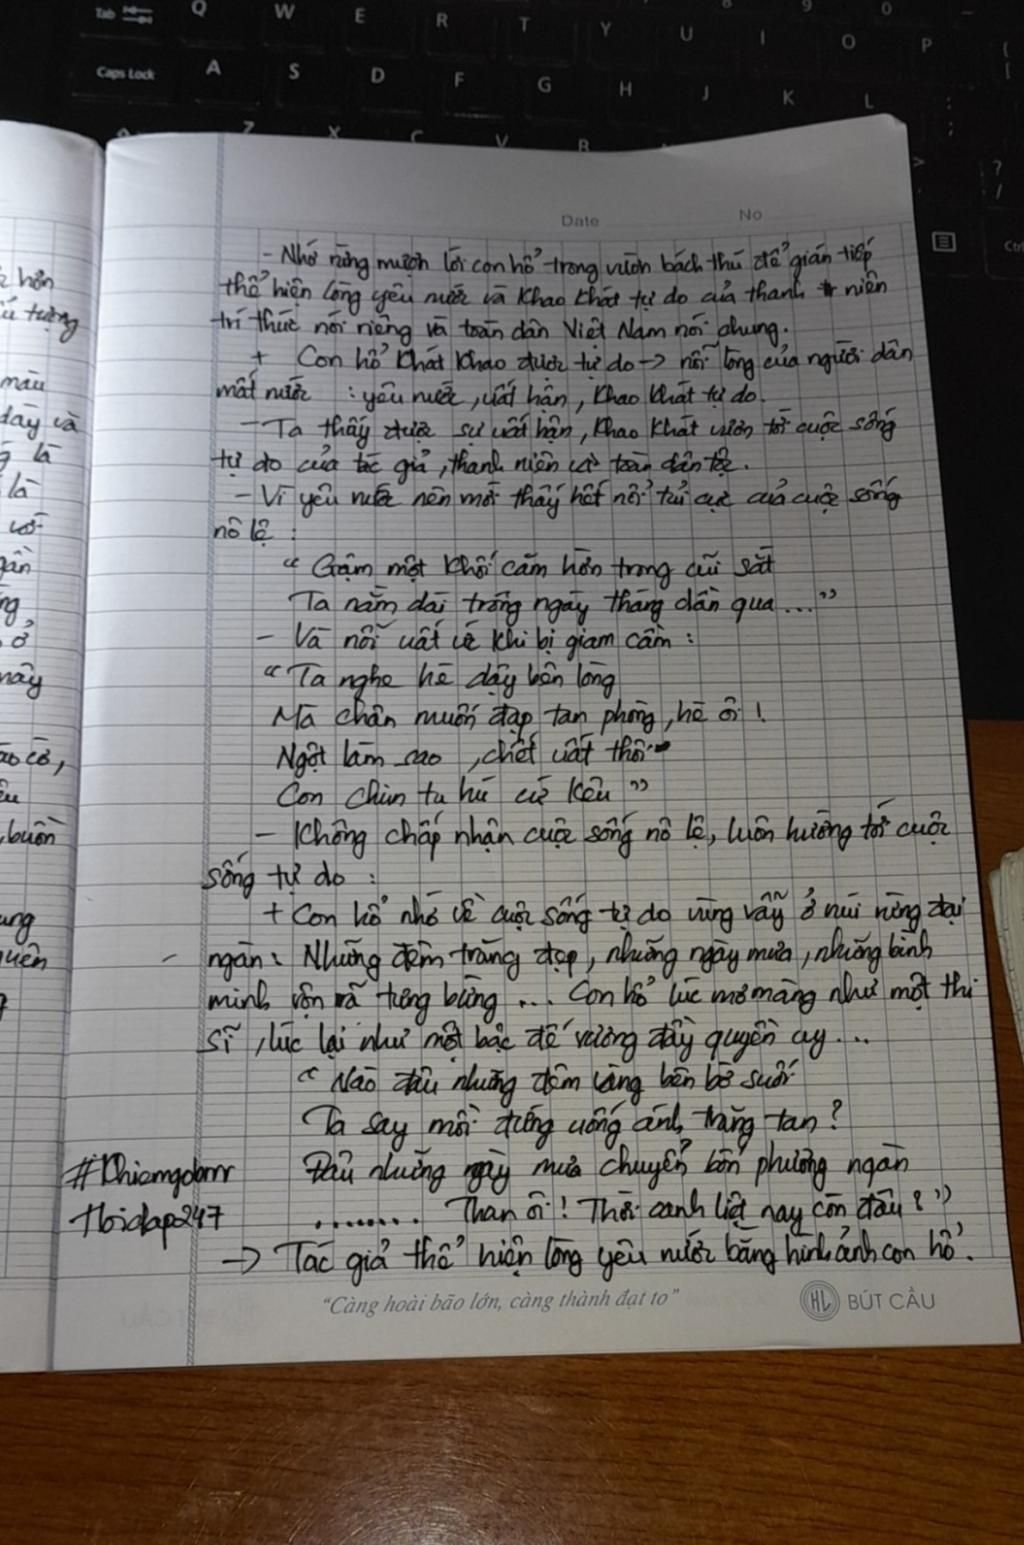 Tab
Q W E R T Y U I O P
Caps Lock A S D F G H J K L
Z X C V B
Ctrl
Date No
- Nhớ rừng mượn lời con hổ trong vườn bách thú để gián tiếp
thể hiện lòng yêu nước và khao khát tự do của thanh niên
trí thức nói riêng và toàn dân Việt Nam nói chung.
+ Con hổ khát khao được tự do → nỗi lòng của người dân
mất nước : yêu nước, uất hận, khao khát tự do.
- Ta thấy được sự uất hận, khao khát vươn tới cuộc sống
tự do của tác giả, thanh niên và toàn dân tộc.
- Vì yêu nước nên mới thấy hết nỗi tủi cực của cuộc sống
nô lệ :
“ Gậm một khối căm hờn trong cũi sắt
Ta nằm dài trông ngày tháng dần qua...”
- Và nỗi uất ức khi bị giam cầm :
“ Ta nghe hè dậy bên lòng
Mà chân muốn đạp tan phòng, hè ôi !
Ngột làm sao, chết uất thôi
Con chim tu hú cứ kêu ”
- Không chấp nhận cuộc sống nô lệ, luôn hướng tới cuộc
sống tự do :
+ Con hổ nhớ về cuộc sống tự do vùng vẫy ở núi rừng đại
ngàn: Những đêm trăng đẹp, những ngày mưa, những bình
minh rộn rã tưng bừng ... Con hổ lúc mơ màng như một thi
sĩ, lúc lại như một bậc đế vương đầy quyền uy...
“ Nào đâu những đêm vàng bên bờ suối
Ta say mồi đứng uống ánh trăng tan ?
Đâu những ngày mưa chuyển bốn phương ngàn
........ Than ôi ! Thời oanh liệt nay còn đâu ? ”
→ Tác giả thể hiện lòng yêu nước bằng hình ảnh con hổ.
hoidap247
“Càng hoài bão lớn, càng thành đạt to”
HL BÚT CẦU
hơn
tương
màu
dày và
là
là
ở
này
buồn